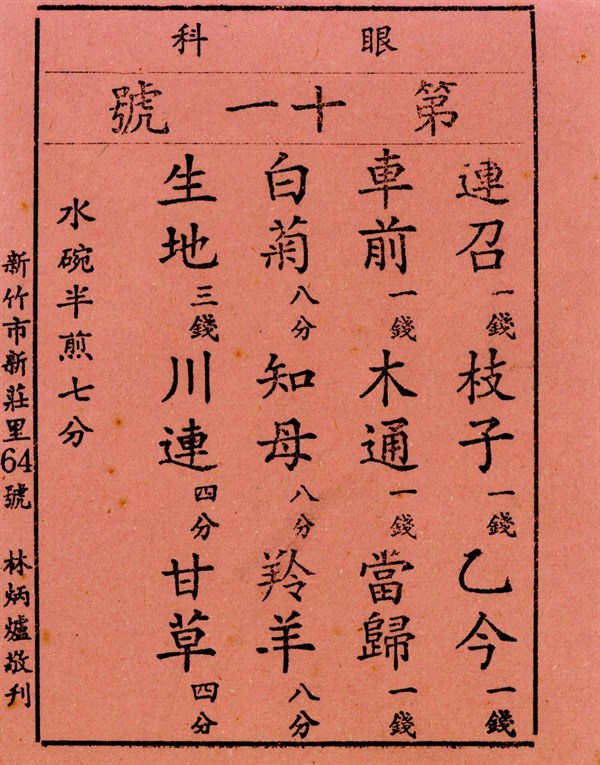 眼科
第十一號
連召一錢枝子一錢乙今一錢
車前一錢木通一錢當歸一錢
白菊八分知母八分羚羊八分
生地三錢川連四分甘草四分
水碗半煎七分
新竹市新莊里64號 林炳爐敬刊